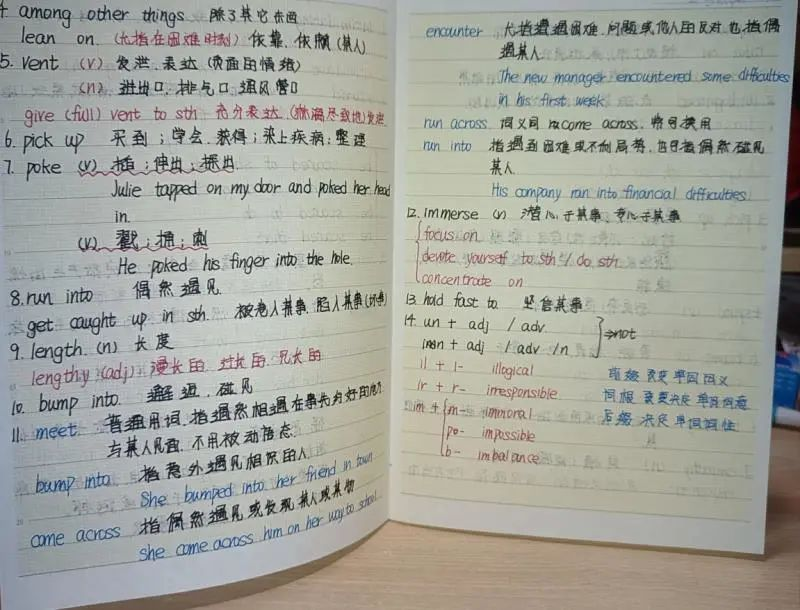 4. among other things 除了其它东西
lean on (尤指在困难时刻) 依靠、依赖 (某人)
5. vent (v) 发泄、表达 (负面的情绪)
(n) 进出口、排气口、通风管口
give (full) vent to sth 充分表达、(淋漓尽致地) 发泄
6. pick up 买到；学会、获得；染上疾病；整理
7. poke (v) 插；伸出；探出
Julie tapped on my door and poked her head
in.
(v) 戳；捅；刺
He poked his finger into the hole.
8. run into 偶然遇见
get caught up in sth. 被卷入某事、陷入某事
9. length (n) 长度
lengthy (adj) 漫长的、过长的、冗长的
10. bump into 邂逅、碰见
11. meet 普通用词，指偶然相遇在事先约好的地方
与某人见面，不用被动语态
bump into 指意外遇见相识的人
She bumped into her friend in town
come across 指偶然遇见或发现某人或某物
she came across him on her way to school.
encounter 尤指遭遇困难、问题或他人的反对，也指偶
遇某人
The new manager encountered some difficulties
in his first week
run across 同义词 come across，常可换用
run into 指遇到困难或不利局势，也可指偶然碰见
某人.
His company ran into financial difficulties
12. immerse (v) 潜心于某事、专心于某事
focus on
devote yourself to sth / do sth.
concentrate on
13. hold fast to 坚信某事
14. un + adj / adv. ⇒not
in + adj / adv / n
il + l- illogical 前缀 改变单词词义
ir + r- irresponsible 词根 决定单词词意
im + m- immoral 后缀 决定单词词性
po- impossible
b- imbalance